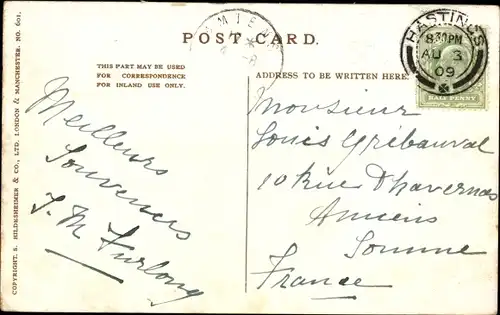 POST CARD.
THIS PART MAY BE USED
FOR CORRESPONDENCE
FOR INLAND USE ONLY.
ADDRESS TO BE WRITTEN HERE
HASTINGS
8.30PM
AU 3
09
HALFPENNY
Meilleurs
Souvenirs
J. M. Furlong
Monsieur
Louis Gribauval
10 Rue Dhavernas
Amiens
Somme
France
COPYRIGHT. S. HILDESHEIMER & CO., LTD. LONDON & MANCHESTER. NO. 601.